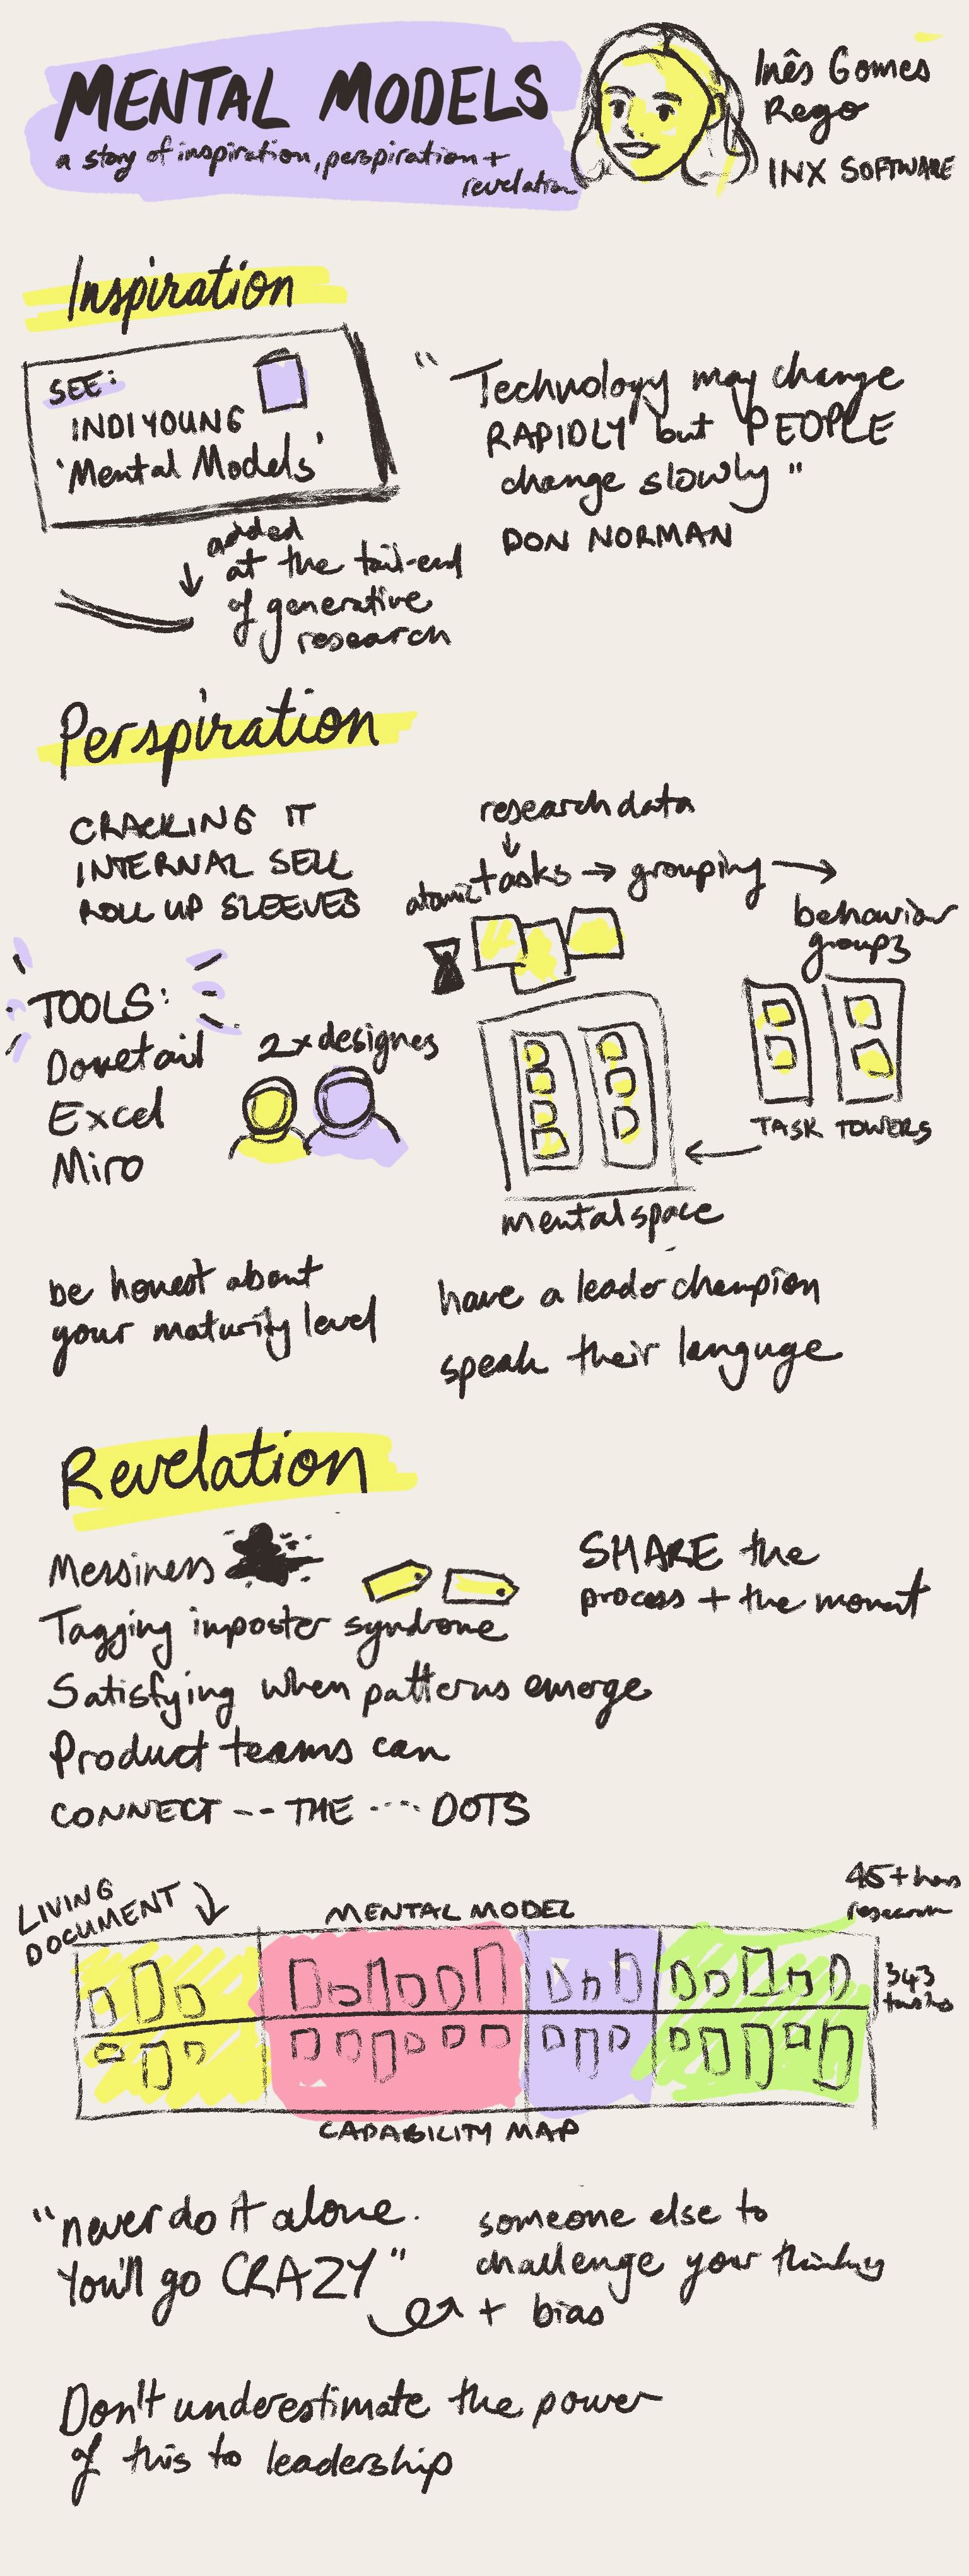 MENTAL MODELS
a story of inspiration, perspiration +
revelation
Inês Gomes
Rego
INX SOFTWARE
Inspiration
SEE:
INDI YOUNG
'Mental Models'
added
at the tail-end
of generative
research
"Technology may change
RAPIDLY but PEOPLE
change slowly"
DON NORMAN
Perspiration
CRACKING IT
INTERNAL SELL
ROLL UP SLEEVES
research data
atomic tasks → grouping →
behavior
groups
TOOLS:
Dovetail
Excel
Miro
2x designes
TASK TOWERS
mental space
be honest about
your maturity level
have a leader champion
speak their languge
Revelation
Messiness
Tagging imposter syndrome
Satisfying when patterns emerge
Product teams can
CONNECT -- THE ---- DOTS
SHARE the
process + the moment
LIVING
DOCUMENT
MENTAL MODEL
45+ hrs
research
343
tasks
CAPABILITY MAP
"never do it alone.
You'll go CRAZY"
someone else to
challenge your thinking
+ bias
Don't underestimate the power
of this to leadership